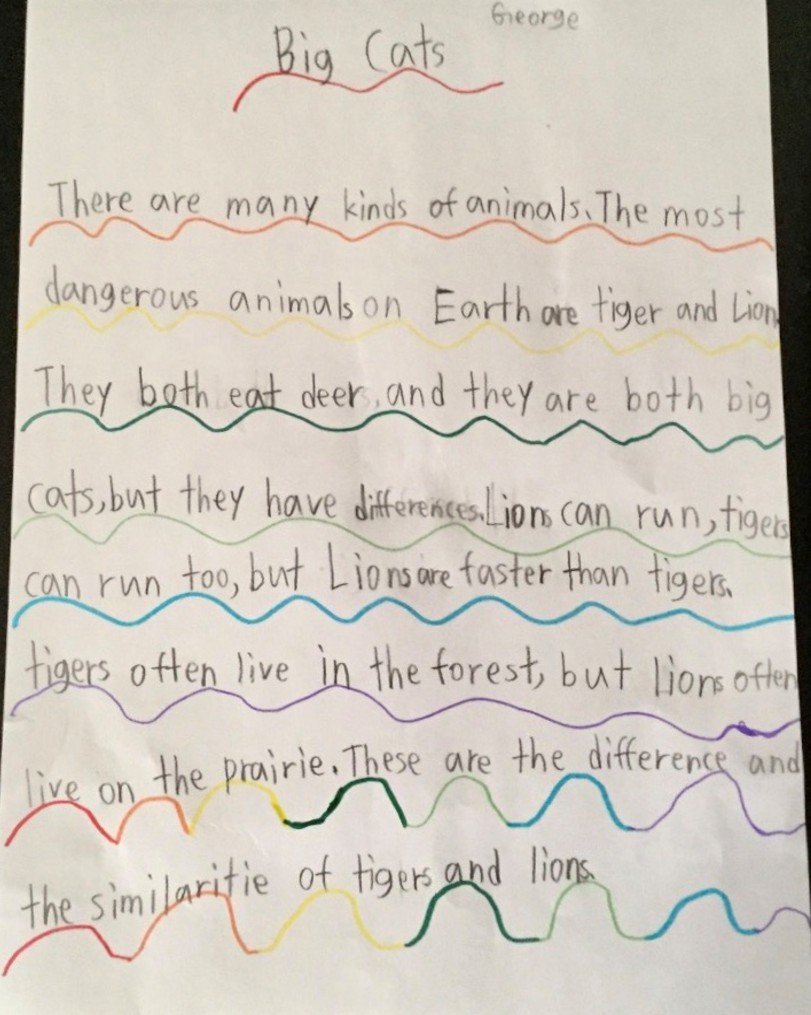 George
Big Cats
There are many kinds of animals. The most
dangerous animals on Earth are tiger and Lion.
They both eat deer, and they are both big
cats, but they have differences. Lions can run, tigers
can run too, but Lions are faster than tigers.
tigers often live in the forest, but lions often
live on the prairie. These are the difference and
the similaritie of tigers and lions.